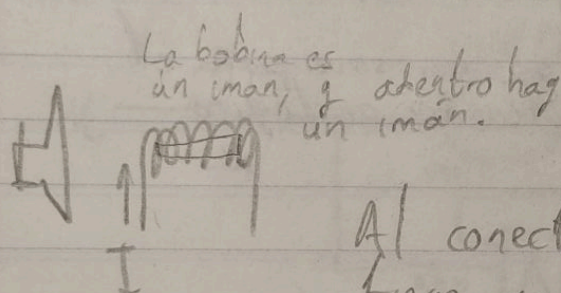 La bobina es
un iman, y adentro hay
un imán.
I
Al conect